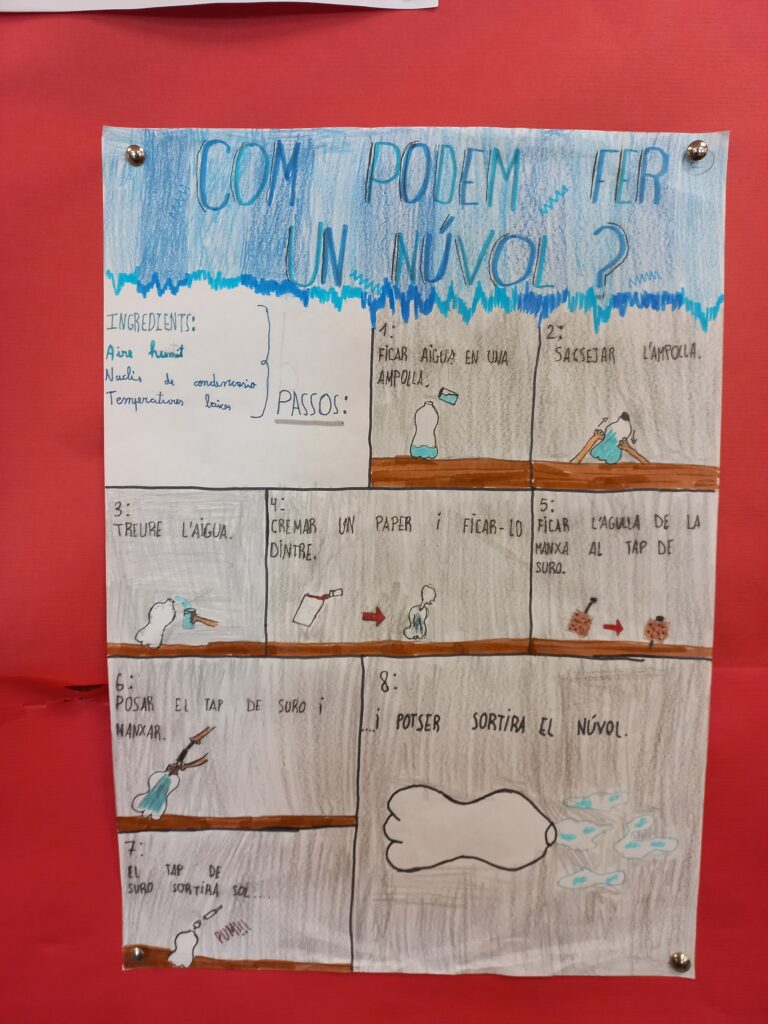 COM PODEM FER
UN NÚVOL?
INGREDIENTS:
Aire humit
Nuclis de condensasio
Temperatures baixes
PASSOS:
1:
FICAR AIGUA EN UNA
AMPOLLA.
2:
SACSEJAR L'AMPOLLA.
3:
TREURE L'AIGUA.
4:
CREMAR UN PAPER I FICAR-LO
DINTRE.
5:
FICAR L'AGULLA DE LA
MANXA AL TAP DE
SURO.
6:
POSAR EL TAP DE SURO I
MANXAR.
7:
EL TAP DE
SURO SORTIRA SOL....
PUM!!!
8:
...I POTSER SORTIRA EL NÚVOL.